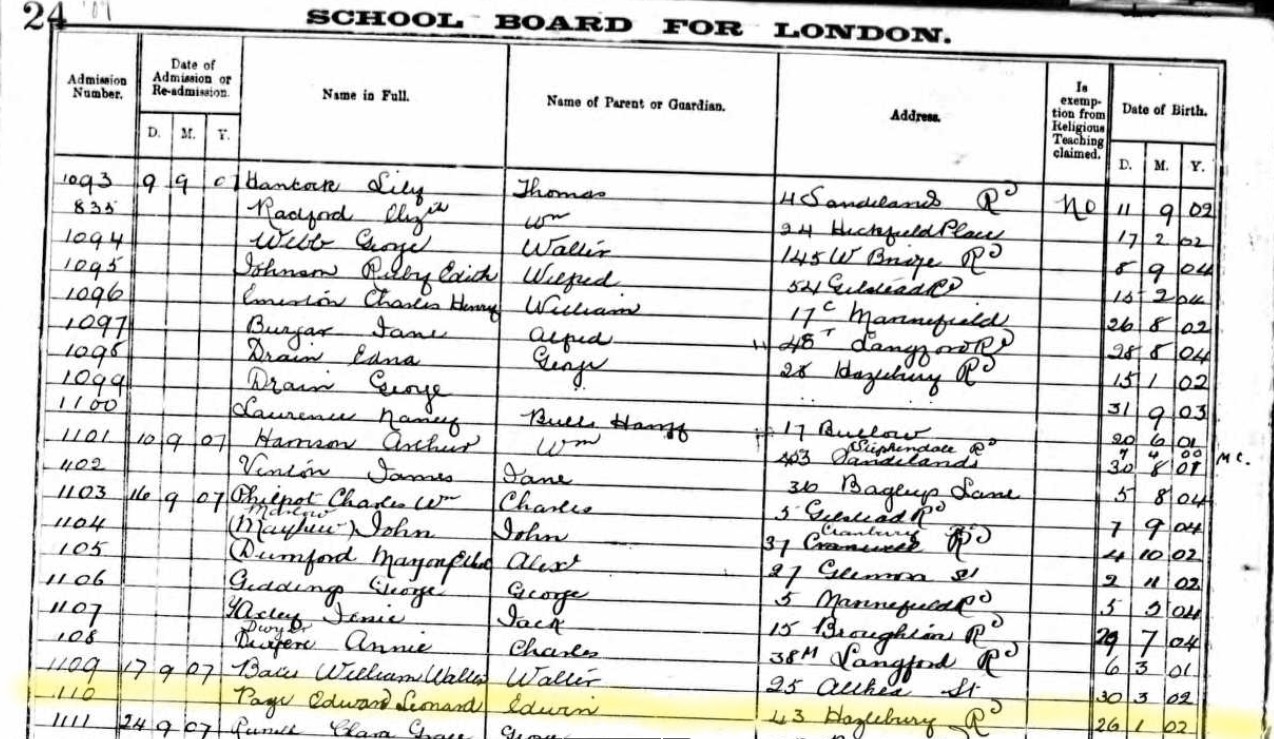 24 '07
SCHOOL BOARD FOR LONDON.
Admission Number. Date of Admission or Re-admission. Name in Full. Name of Parent or Guardian. Address. Is exemption from Religious Teaching claimed. Date of Birth.
D. M. Y. D. M. Y.
1093 9 9 07 Hancock Lily Thomas 4 Sandilands Rd No 11 9 02
835 Radford Elizth Wm 24 Heckfield Place 17 2 02
1094 Webb George Walter 145 W Bridge Rd 8 9 04
1095 Johnson Ruby Edith Wilfred 54 Gilstead Rd 15 2 04
1096 Charles Henry William 17c Marinefield 26 8 02
1097 Burgar Jane Alfred 48 Langford Rd 28 8 04
1098 Drain Edna George 28 Hazlebury Rd 15 1 02
1099 Drain George 31 9 03
1100 Laurence Nancy 17 20 6 01
1101 10 9 07 Harrison Arthur Wm Stephendale Rd 403 Sandilands 7 4 00 30 8 01 MC.
1102 Vinton James Jane 36 Bagleys Lane 5 8 04
1103 16 9 07 Philpot Charles Wm Charles 5 Gilstead Rd 7 9 04
1104 (Mayhew) John John 37 Cranbury Rd 4 10 02
1105 (Dumford Alexr 27 Glenrosa St 2 11 02
1106 Giddings George George 5 Marinefield Rd 5 04
1107 Yaxley Jack 15 Broughton Rd 29 7 04
1108 Dwyer Annie Charles 38M Langford Rd 6 3 01
1109 17 9 07 William Walter Walter 25 Althea St 30 3 02
1110 Page Edward Leonard Edwin 43 Hazlebury Rd 26 1 02
1111 24 9 07 Clara Grace